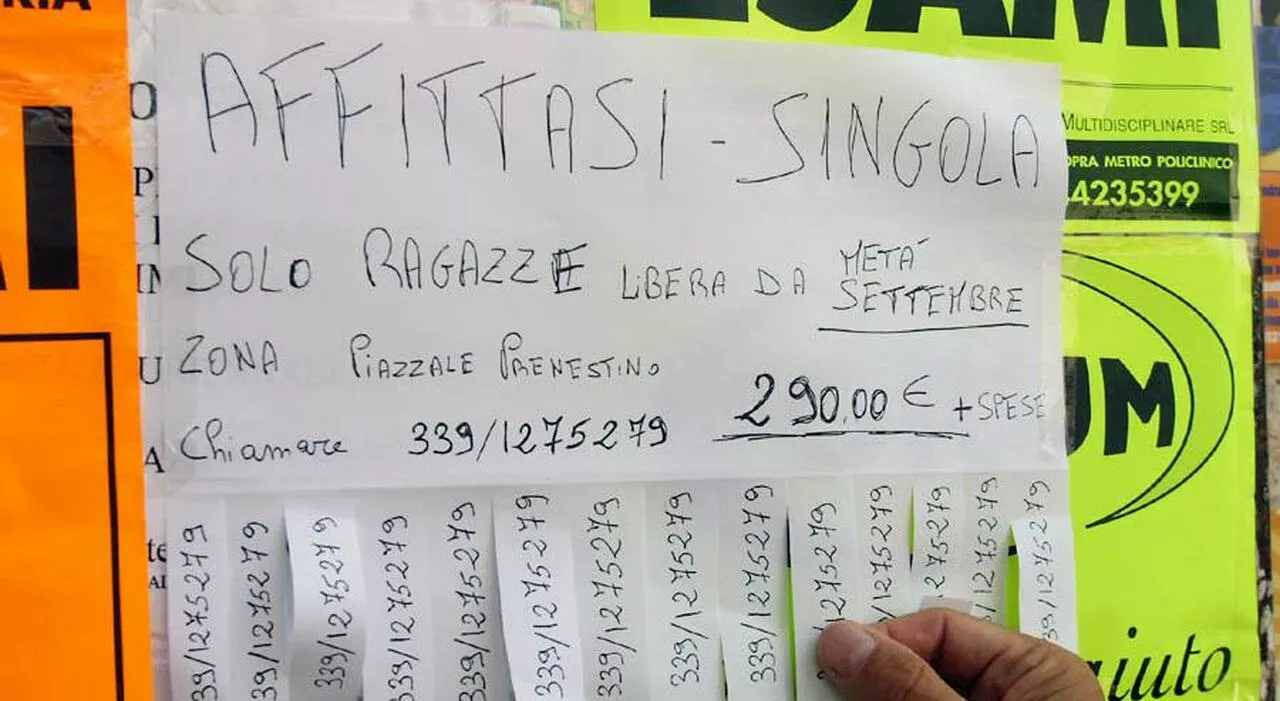 AFFITTASI - SINGOLA
SOLO RAGAZZE LIBERA DA METÀ SETTEMBRE
ZONA PIAZZALE PRENESTINO
290,00 € + SPESE
Chiamare 339/1275279
339/1275279
339/1275279
339/1275279
339/1275279
339/1275279
339/1275279
339/1275279
339/1275279
339/1275279
1275279
1275279
1275279
1275279
39/1275279
ESAMI
MULTIDISCIPLINARE SRL
OPRA METRO POLICLINICO
4235399
UM
aiuto
RIA